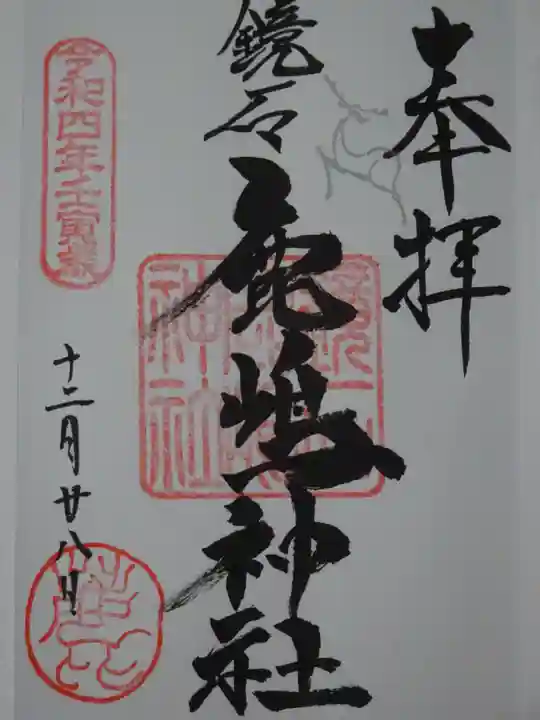 奉拝
鏡石
鹿嶋神社
神社
令和四年壬寅歳
十二月廿八日